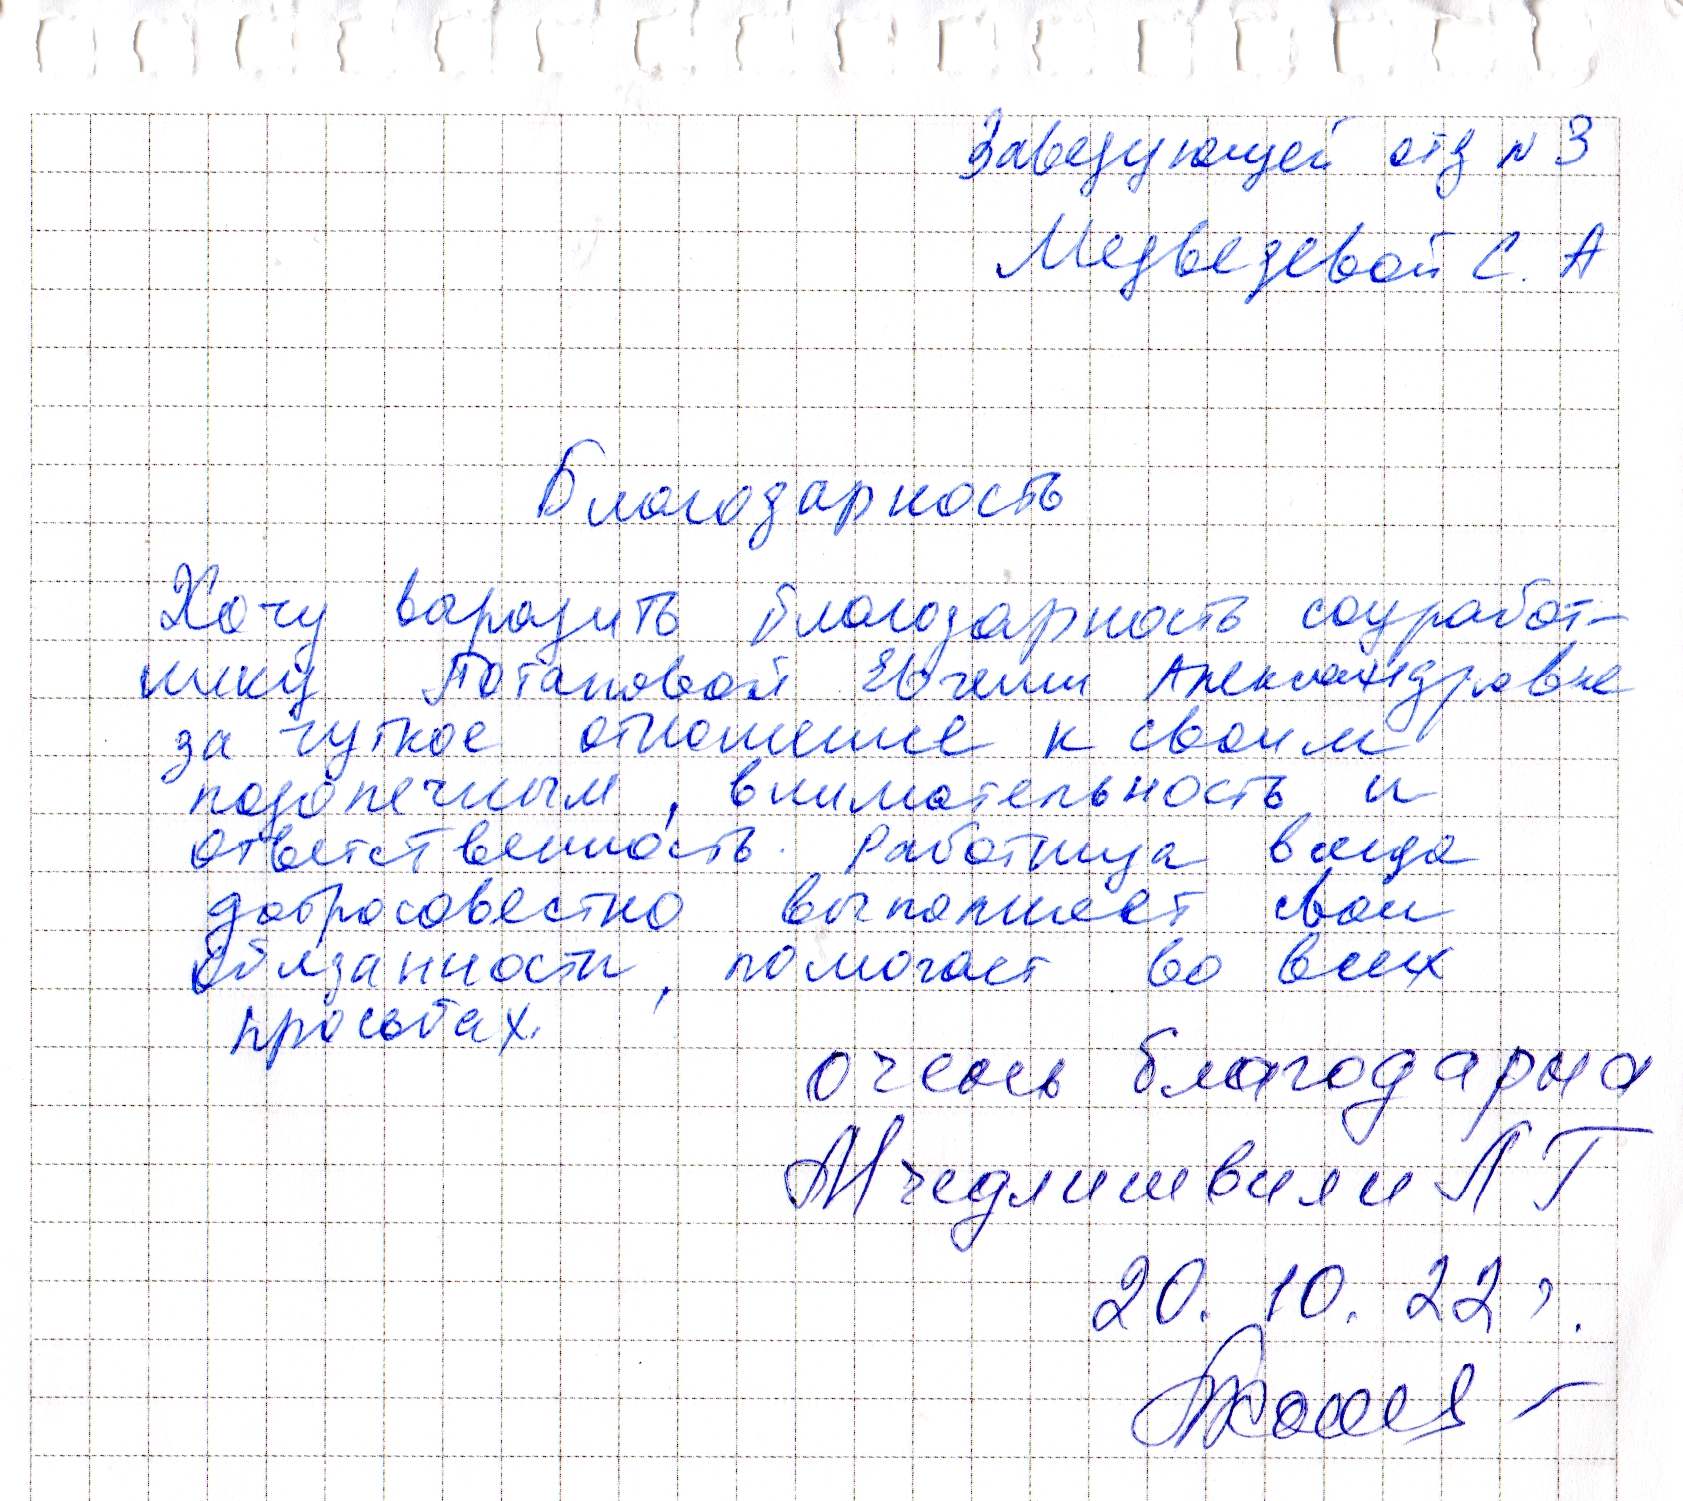 Заведующей отд N 3
Медведевой С. А
Благодарность
Хочу выразить благодарность соцработ-
нику Потаповой Евгении Александровне
за чуткое отношение к своим
подопечным, внимательность и
ответственность. Работница всегда
добросовестно выполняет свои
обязанности, помогает во всех
просьбах.
очень благодарна
Мчедлишвили Л Г
20. 10. 22 г.